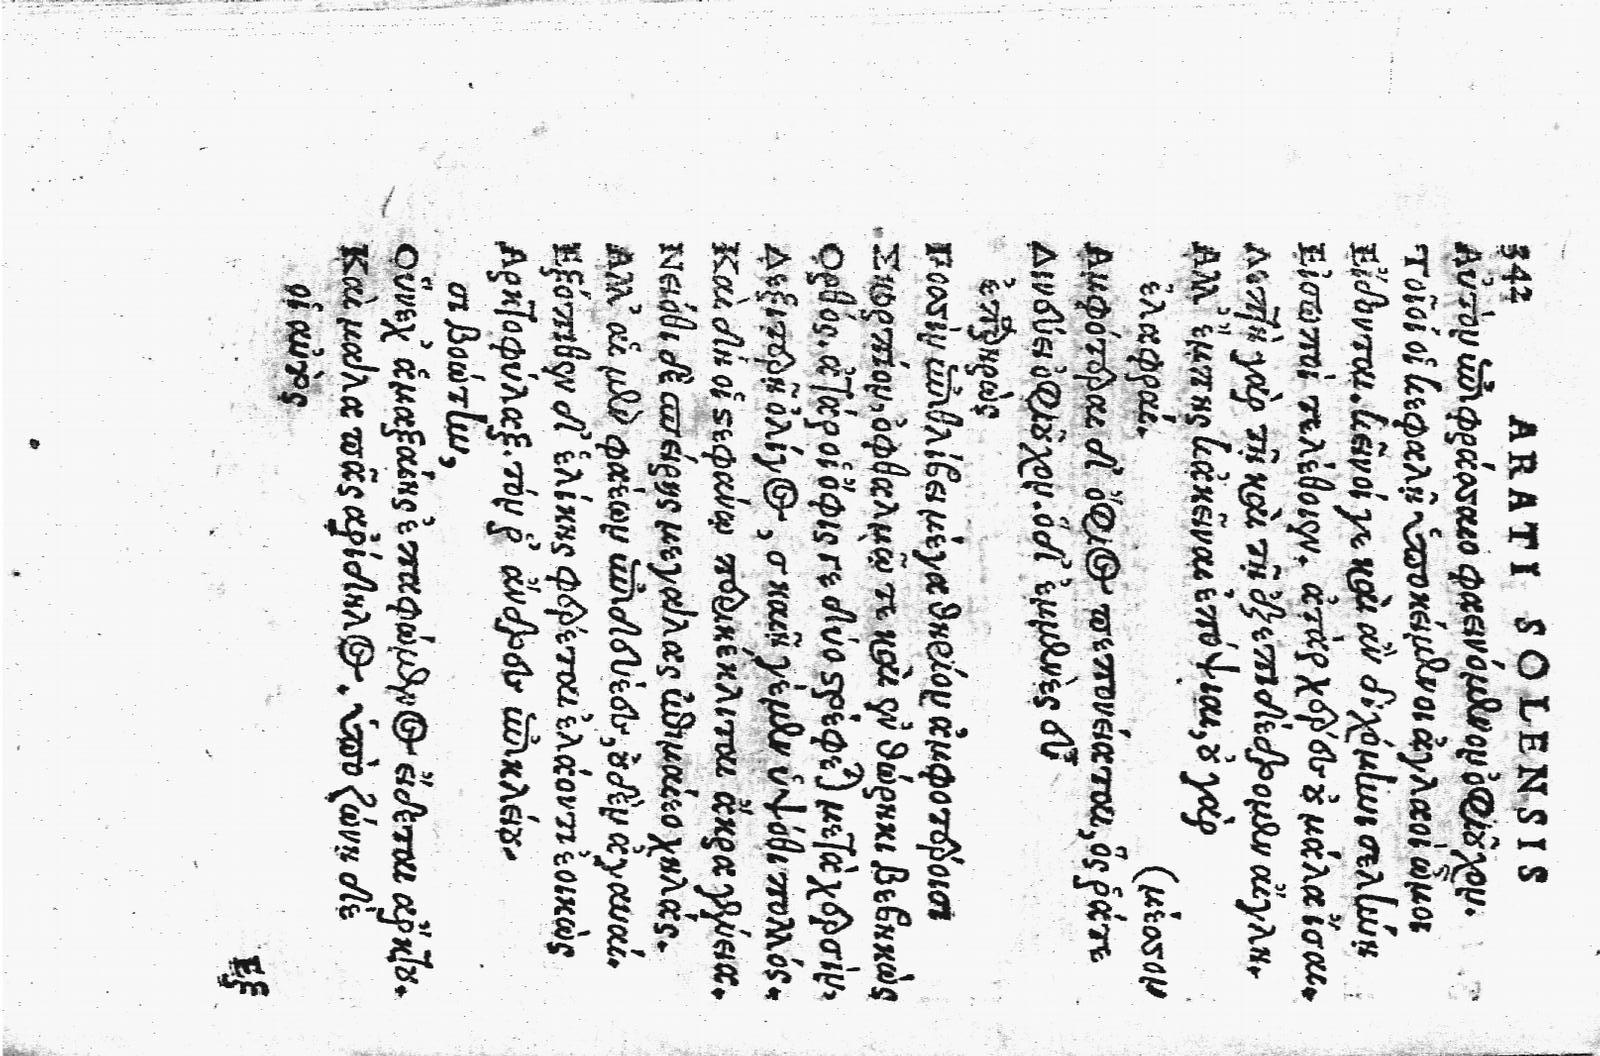 342 ARATI SOLENSIS
Αὐτὸν ἐπιφράσσαιο φαεινόμενον ὀφιοῦχον.
Τοῖοί οἱ κεφαλῇ ὑποκείμενοι ἀγλαοὶ ὦμοι
Εἴδονται. κεῖνοί γε καὶ ἂν διχόμηνι σελήνῃ
Εἰσωποὶ τελέθοιεν. ἀτὰρ χέρες οὐ μάλα ἶσαι.
Λεπτὴ γὰρ τῇ καὶ τῇ ἐπιδέδρομεν αἴγλη.
Ἀλλ' ἔμπης κἀκεῖναι ἐπόψιαι, οὐ γὰρ
ἐλαφραί. (μέσσον
Ἀμφότεραι δ' ὄφιος πεπονείαται, ὅς ῥά τε
Δινεύει ὀφιοῦχον. ὁ δ' ἐμμενὲς εὖ
ἐπαρηρὼς
Ποσσὶν ἐπιθλίβει μέγα θηρίον ἀμφοτέροισι
Σκορπίον, ὀφθαλμῷ τε καὶ ἐν θώρηκι βεβηκὼς
Ὀρθός. ἀτάρ οἱ ὄφις γε δύο στρέφεται μετὰ χερσίν,
Δεξιτερῇ ὀλίγος, σκαιῇ γε μὲν ὑψόθι πολλός.
Καὶ δή οἱ στεφάνῳ περικέκλιται ἄκρα γένεια.
Νειόθι δὲ σπείρης μεγάλας ἐπιμαίεο χηλάς.
Ἀλλ' αἱ μὲν φαέων ἐπιδευέες, οὐδὲν ἀγαυαί.
Ἐξόπιθεν δ' ἑλίκης φέρεται ἐλάοντι ἐοικὼς
Ἀρκτοφύλαξ. τόν ῥ' ἄνδρες ἐπικλείου-
σι βοώτην,
Οὕνεχ' ἁμαξαίης ἐπαφώμενος εἴδεται ἄρκτου.
Καὶ μάλα πᾶς ἀρίδηλος. ὑπὸ ζώνῃ δέ
οἱ αὐτὸς
Ἐξ